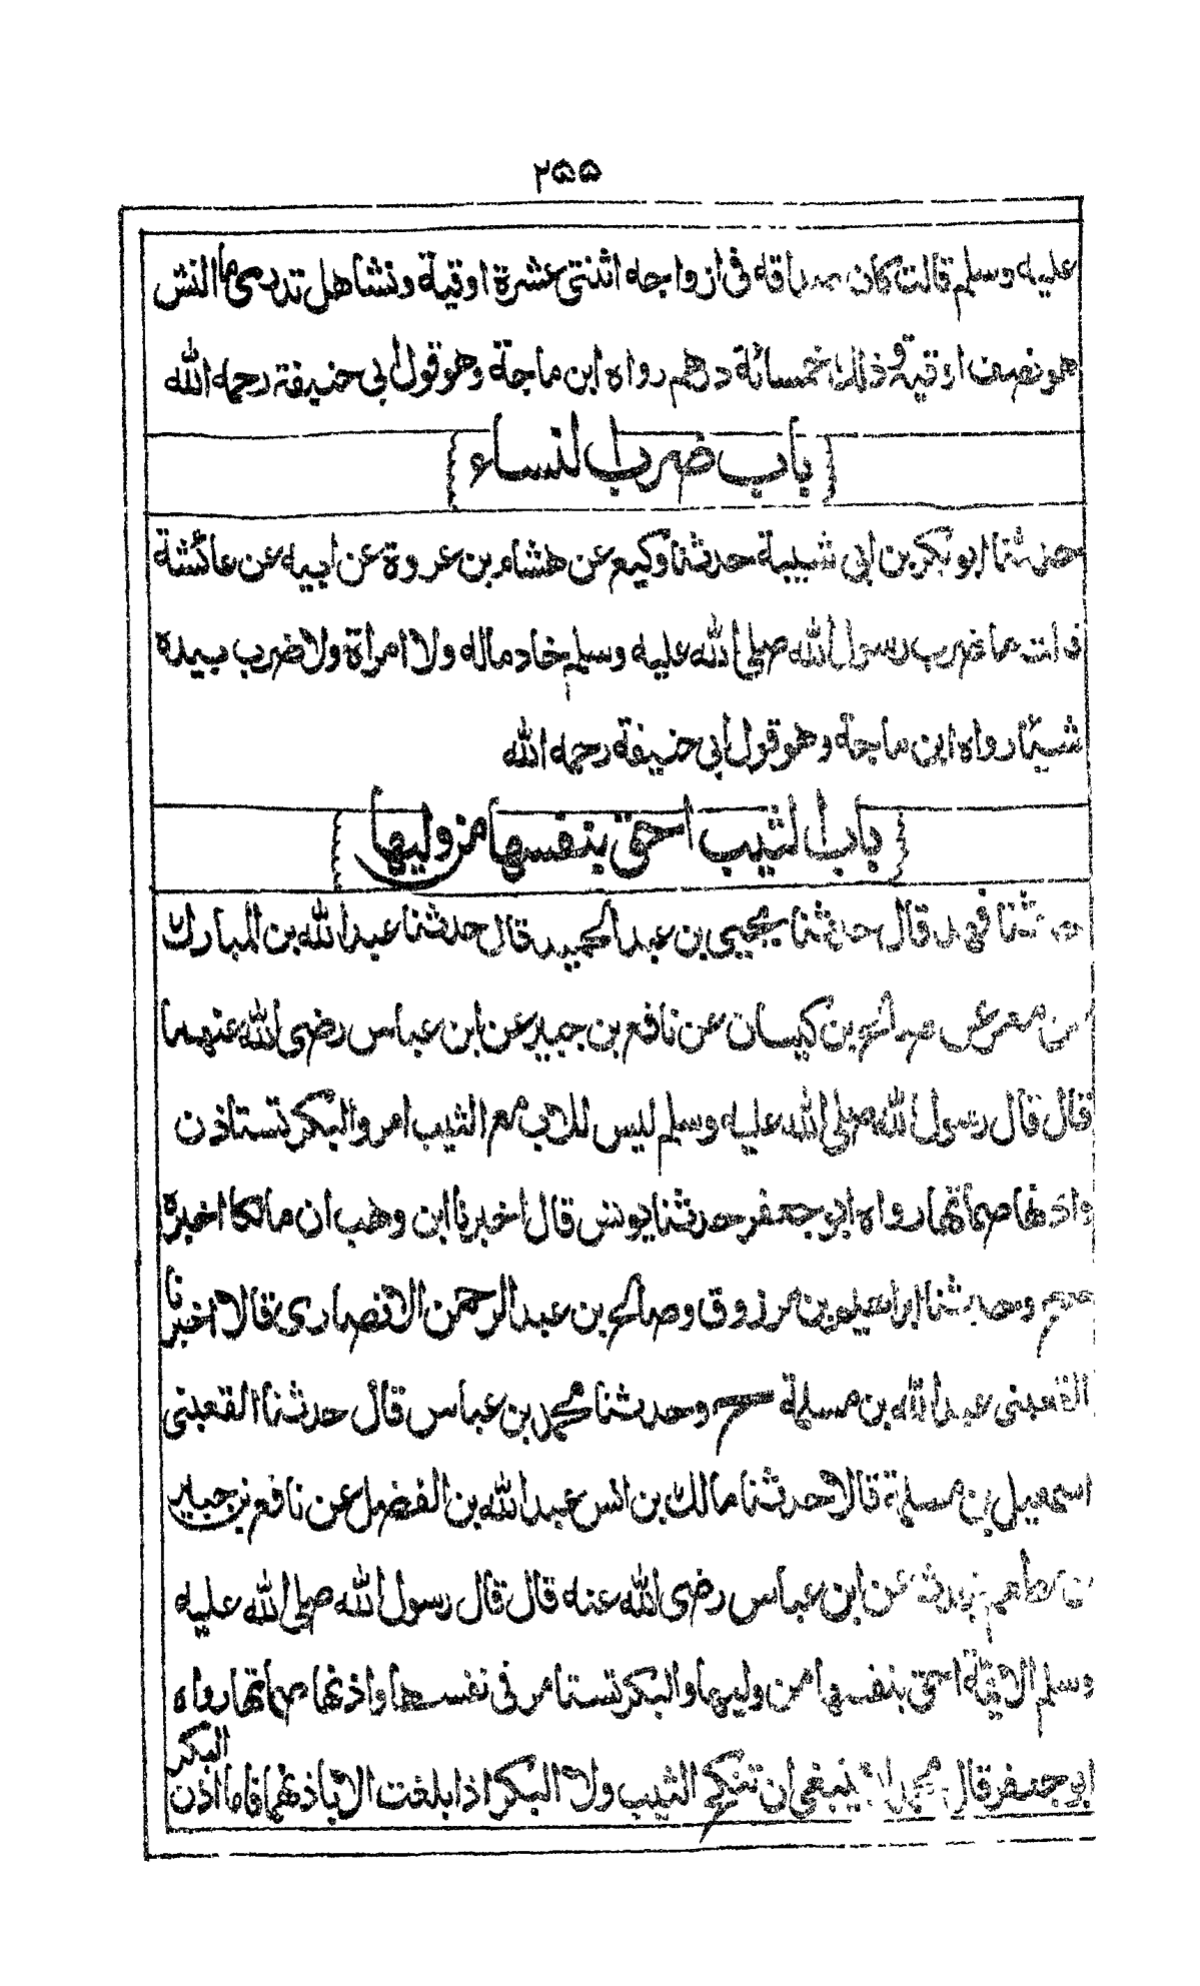 ٢٥٥
عليه وسلم قالت كان صداقه فى ازواجه اثنتى عشرة اوقية ونشا هل تدرى ما النش
هو نصف اوقية وذلك خمسائة درهم رواه ابن ماجة وهو قول ابى حنيفة رحمه الله
باب ضرب النساء
حدثنا ابو بكر بن ابى شيبة حدثنا وكيع عن هشام بن عروة عن ابيه عن عائشة
قالت ما ضرب رسول الله صلى الله عليه وسلم خادماله ولا امراة ولا ضرب بيده
شيئا رواه ابن ماجة وهو قول ابى حنيفة رحمه الله
باب الثيب احق بنفسها من وليها
حدثنا فهد قال حدثنا يحيى بن عبد الحميد قال حدثنا عبد الله بن المبارك
عن معمر عن صالح بن كيسان عن نافع بن جبير عن ابن عباس رضى الله عنهما
قال قال رسول الله صلى الله عليه وسلم ليس للاب مع الثيب امر والبكر تستاذن
واذنها صماتها رواه ابو جعفر حدثنا يونس قال اخبرنا ابن وهب ان مالكا اخبره
ح وحدثنا ابراهيم بن مرزوق وصالح بن عبد الرحمن الانصارى قالا اخبرنا
القعنبى عبد الله بن مسلمة ح وحدثنا محمد بن عباس قال حدثنا القعنبى
اسمعيل بن مسلمة قالا حدثنا مالك بن انس عبد الله بن الفضل عن نافع بن جبير
بن مطعم عن ابن عباس رضى الله عنه قال قال رسول الله صلى الله عليه
وسلم الايم احق بنفسها من وليها والبكر تستامر فى نفسها واذنها صماتها رواه
ابو جعفر قال محمد لا ينبغى ان تنكح الثيب ولا البكر اذا بلغت الا باذنهما فاما اذن
البكر